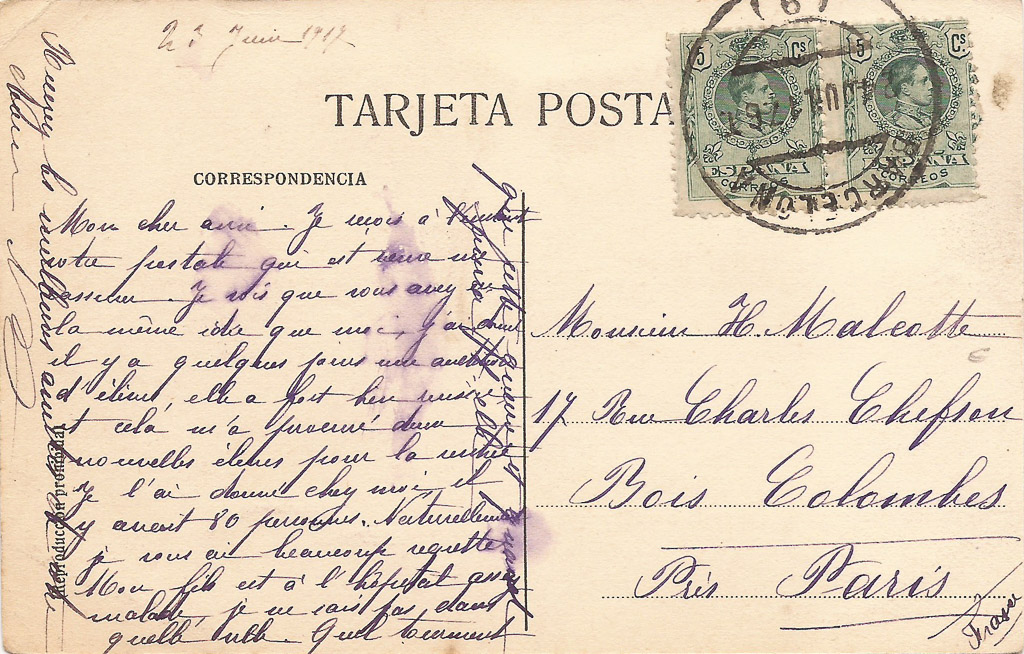 23 Juin 1917
TARJETA POSTA
5 Cs 5 Cs
ESPAÑA ESPAÑA
CORREOS CORREOS
BARCELONA
CORRESPONDENCIA
Mon cher ami. Je reçois à l'instant
votre postale qui est venue me
Je vois que vous avez
la même idée que moi, j'ai donné
il y a quelques jours une audition
d'élèves, elle a fort bien reussi
et cela m'a procuré deux
nouvelles élèves pour la rentrée
Je l'ai donné chez moi, il
y avait 80 personnes. Naturellement
je vous ai beaucoup regretté
Mon fils est à l'hôpital assez
malade, je ne sais pas dans
quelle ville. Quel tourment
que cette guerre et quand
Reproducción prohibida
Monsieur H. Malcotte
17 Rue Charles Chefson
Bois Colombes
Près Paris
France